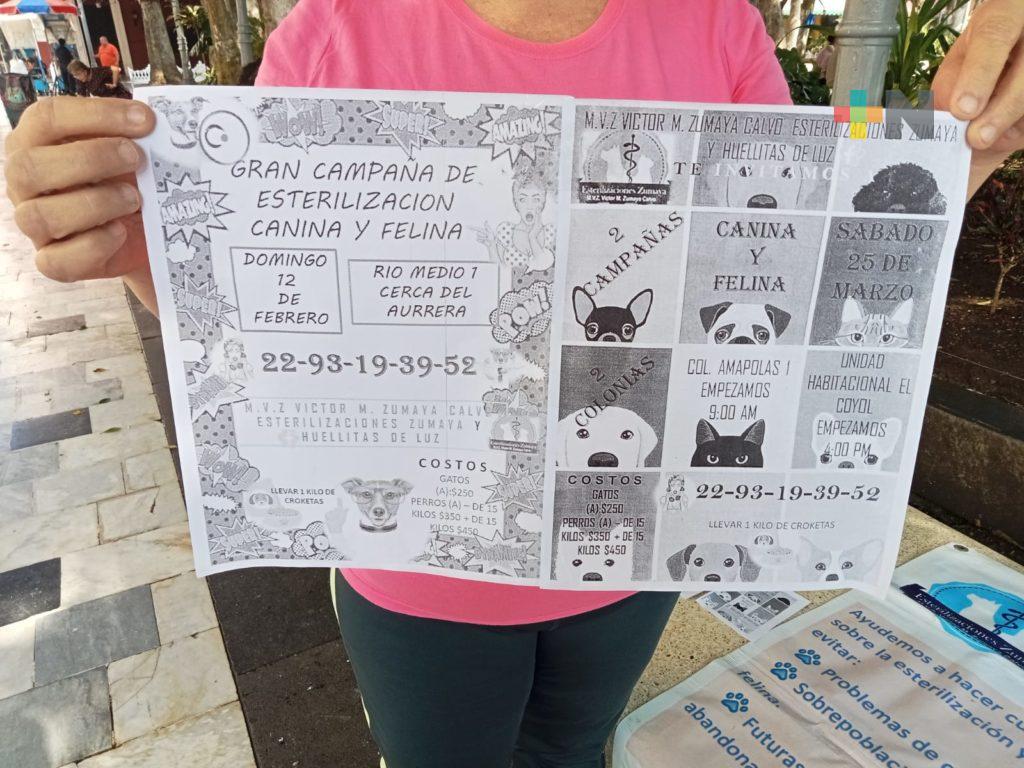 WOW!
SUPER!
AMAZING!
GRAN CAMPAÑA DE
ESTERILIZACION
CANINA Y FELINA
AMAZING!
DOMINGO
12
DE
FEBRERO
RIO MEDIO 1
CERCA DEL
AURRERA
SUPER!
POW!
22-93-19-39-52
M.V.Z VICTOR M. ZUMAYA CALV
ESTERILIZACIONES ZUMAYA Y
HUELLITAS DE LUZ
COSTOS
GATOS
(A):$250
PERROS (A) – DE 15
KILOS $350 + DE 15
KILOS $450
LLEVAR 1 KILO DE
CROKETAS
M.V.Z VICTOR M. ZUMAYA CALVO. ESTERILIZACIONES ZUMAYA
Y HUELLITAS DE LUZ
TE INVITAMOS
Esterilizaciones Zumaya
M.V.Z. Victor M. Zumaya Calvo
2
CAMPAÑAS
CANINA
Y
FELINA
SABADO
25 DE
MARZO
2
COLONIAS
COL. AMAPOLAS 1
EMPEZAMOS
9:00 AM
UNIDAD
HABITACIONAL EL
COYOL
EMPEZAMOS
4:00 PM
COSTOS
GATOS
(A):$250
PERROS (A) – DE 15
KILOS $350 + DE 15
KILOS $450
22-93-19-39-52
LLEVAR 1 KILO DE CROKETAS
Esterilizaciones Zum
Ayudemos a hacer
sobre la esterilización y
evitar:
felina.
Problemas de
Sobrepoblac
Futuras
abandona